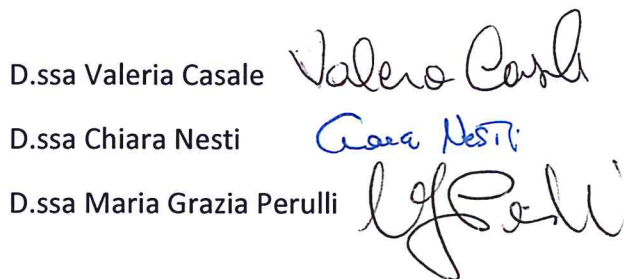 D.ssa Valeria Casale Valeria Casale
D.ssa Chiara Nesti Chiara Nesti
D.ssa Maria Grazia Perulli